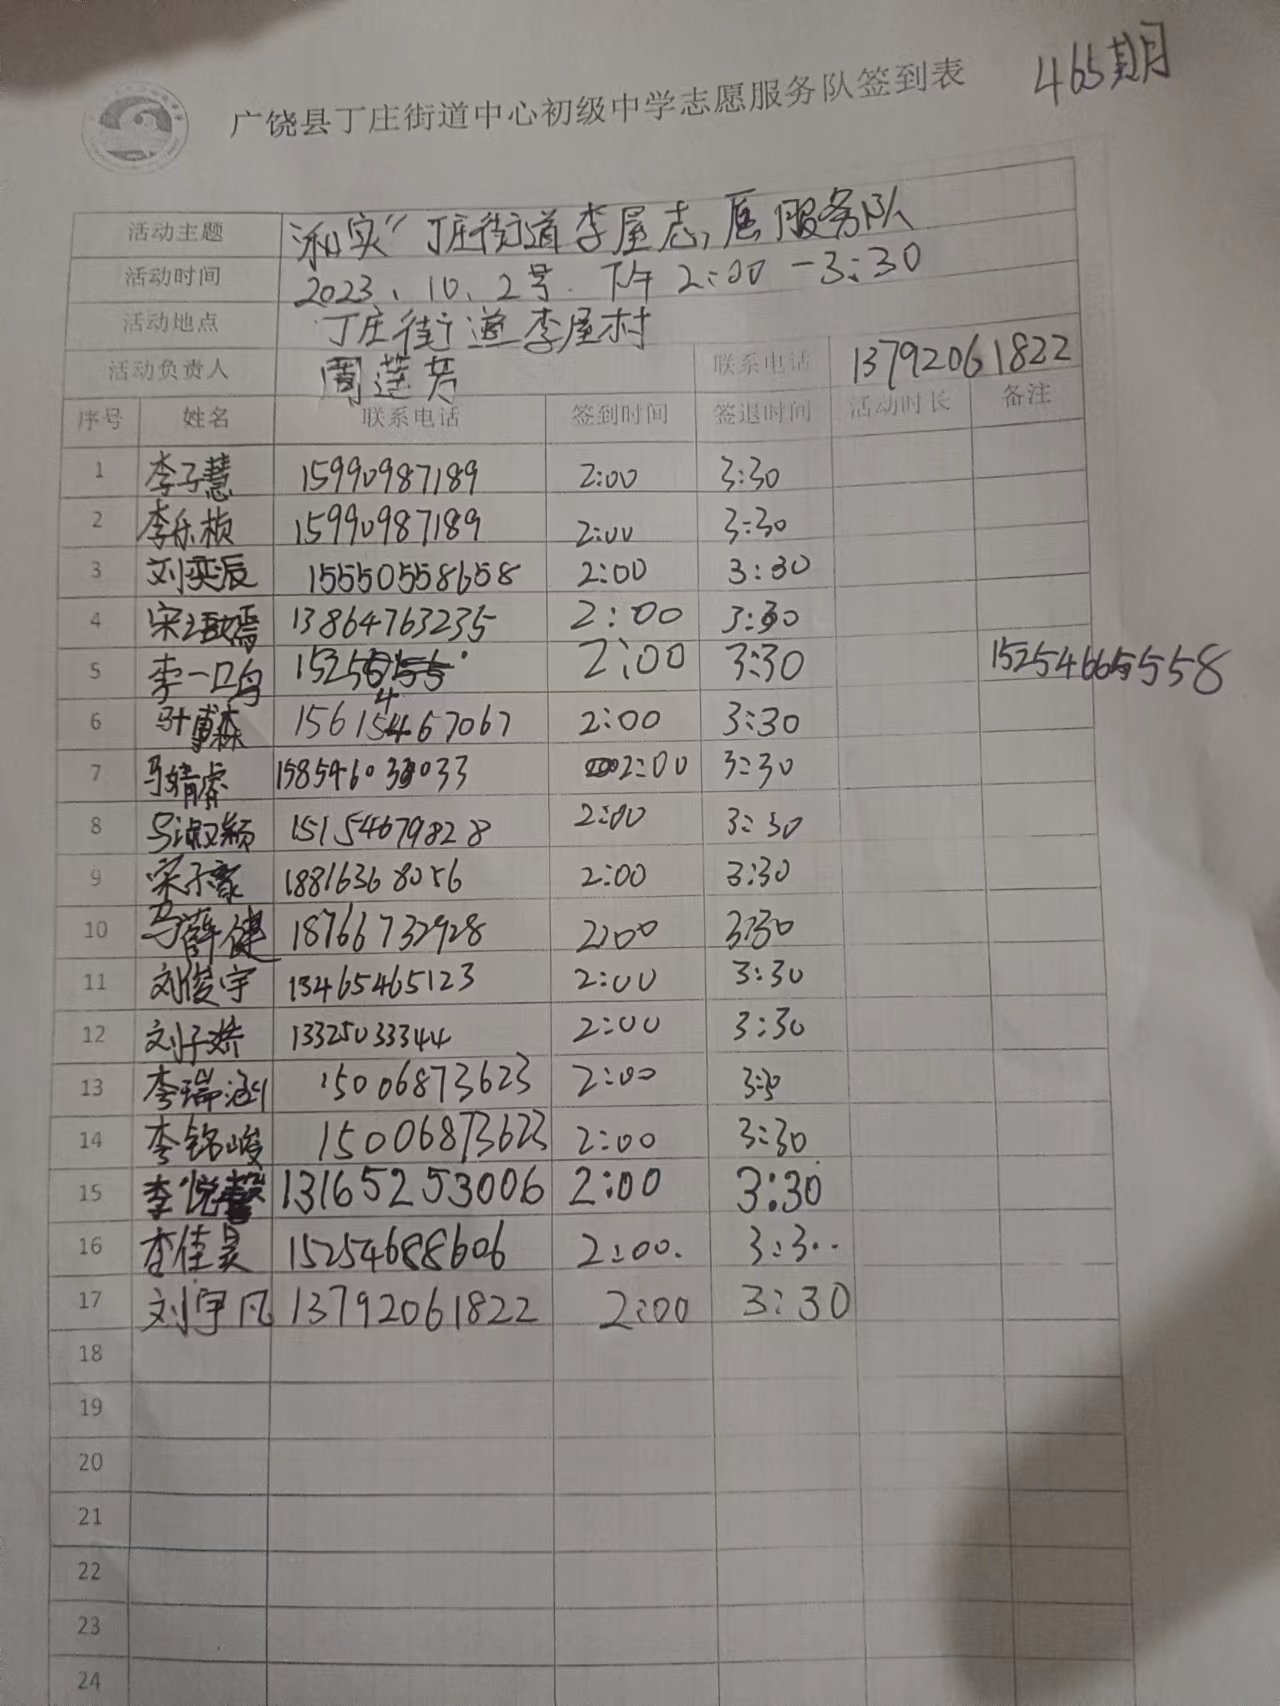 广饶县丁庄街道中心初级中学志愿服务队签到表 465期
活动主题 “和实”丁庄街道李屋志愿服务队
活动时间 2023、10、2号 下午2:00-3:30
活动地点 丁庄街道李屋村
活动负责人 周莲芳 联系电话 13792061822
序号 姓名 联系电话 签到时间 签退时间 活动时长 备注
1 李子慧 15990987189 2:00 3:30
2 李乐桢 15990987189 2:00 3:30
3 刘奕辰 15550558658 2:00 3:30
4 13864763235 2:00 3:30
5 李一鸣 2:00 3:30
6 叶博森 2:00 3:30
7 马婧睿 2:00 3:30
8 马淑颖 15154679828 2:00 3:30
9 宋子豪 18816368056 2:00 3:30
10 马薛健 18766732928 2:00 3:30
11 刘俊宇 13465465123 2:00 3:30
12 刘子娇 13325033344 2:00 3:30
13 李瑞涵 15006873623 2:00 3:30
14 李铭峻 15006873623 2:00 3:30
15 李悦馨 13165253006 2:00 3:30
16 李佳昊 15254688606 2:00. 3:30
17 刘宇凡 13792061822 2:00 3:30
18
19
20
21
22
23
24